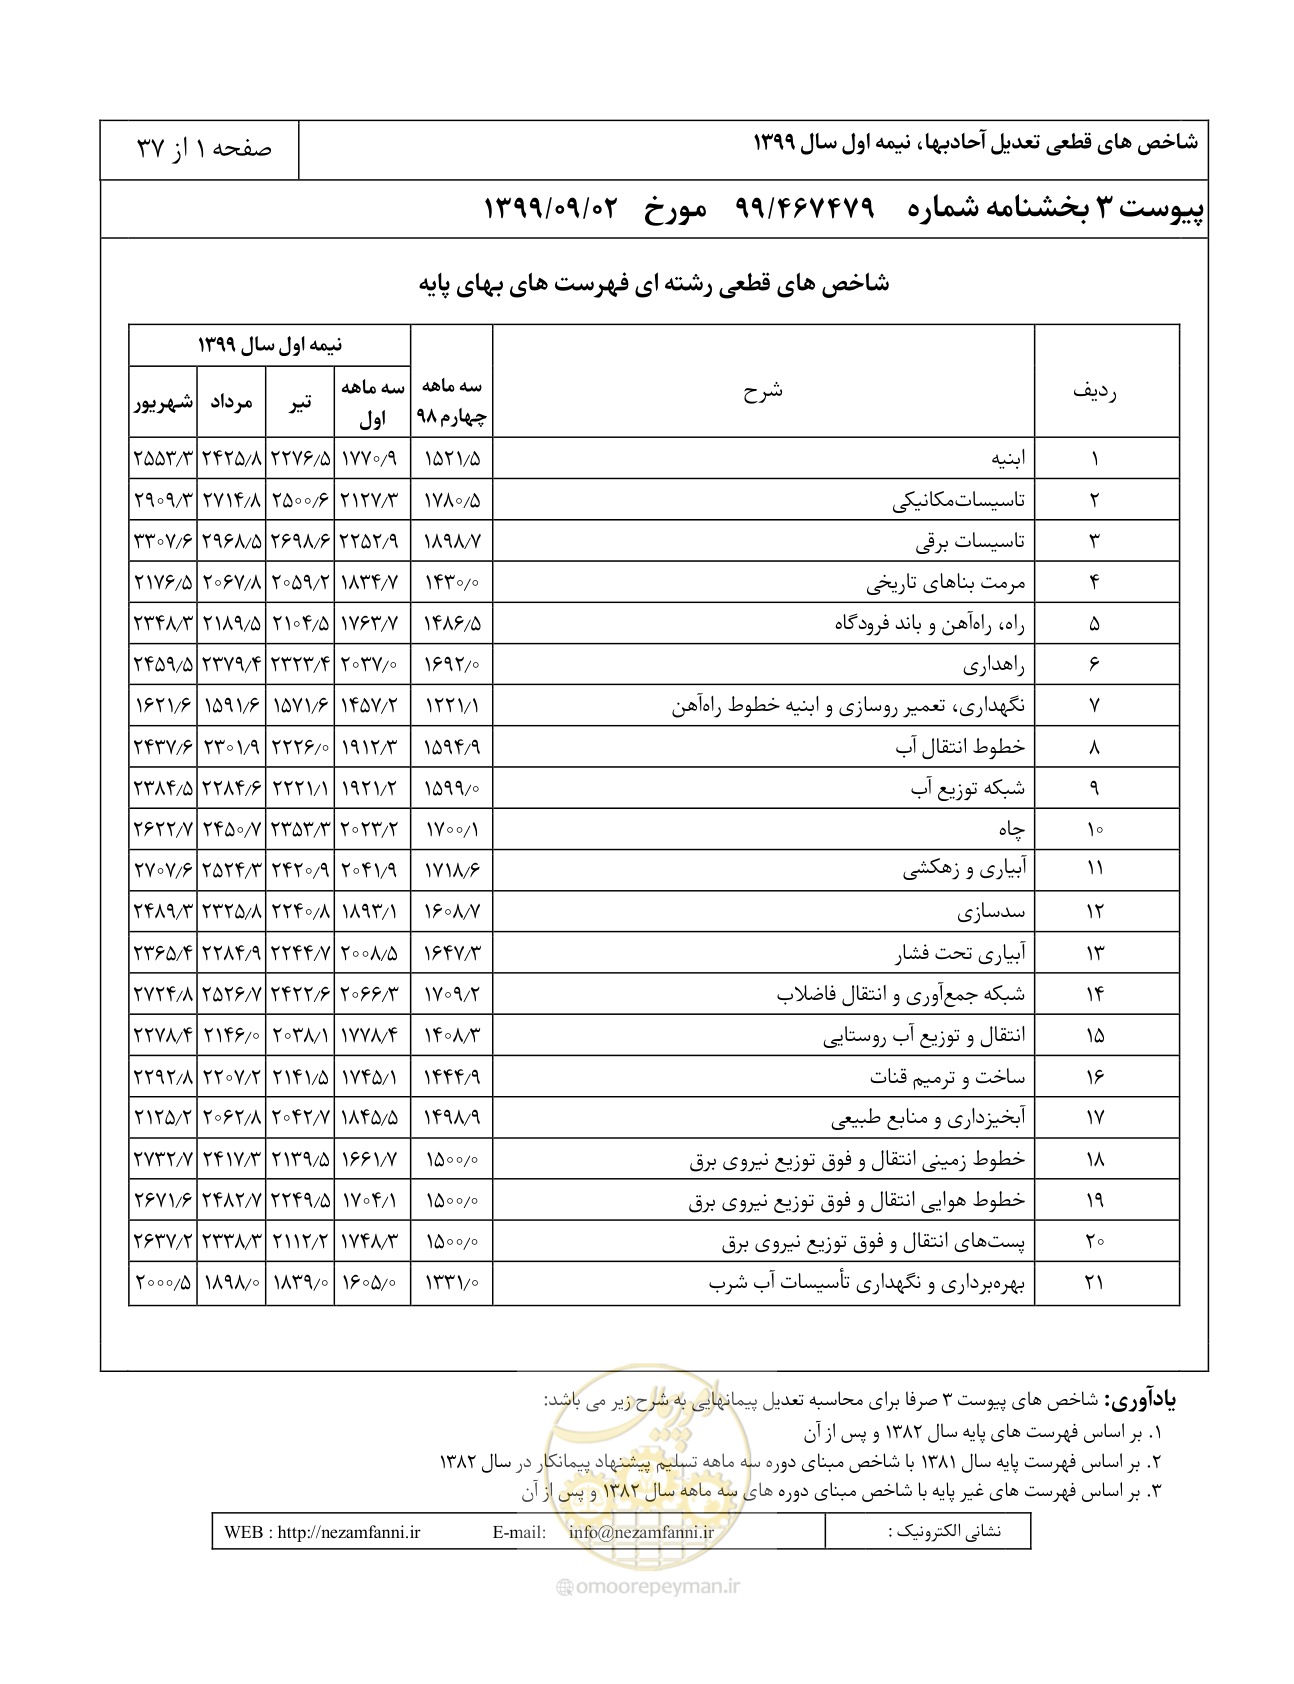 شاخص های قطعی تعدیل آحادبها، نیمه اول سال ۱۳۹۹
صفحه ۱ از ۳۷
پیوست ۳ بخشنامه شماره ۹۹/۴۶۷۴۷۹ مورخ ۱۳۹۹/۰۹/۰۲
شاخص های قطعی رشته ای فهرست های بهای پایه
ردیف شرح سه ماهه چهارم ۹۸ نیمه اول سال ۱۳۹۹
سه ماهه اول تیر مرداد شهریور
۱ ابنیه ۱۵۲۱/۵ ۱۷۷۰/۹ ۲۲۷۶/۵ ۲۴۲۵/۸ ۲۵۵۳/۳
۲ تاسیسات‌مکانیکی ۱۷۸۰/۵ ۲۱۲۷/۳ ۲۵۰۰/۶ ۲۷۱۴/۸ ۲۹۰۹/۳
۳ تاسیسات برقی ۱۸۹۸/۷ ۲۲۵۲/۹ ۲۶۹۸/۶ ۲۹۶۸/۵ ۳۳۰۷/۶
۴ مرمت بناهای تاریخی ۱۴۳۰/۰ ۱۸۳۴/۷ ۲۰۵۹/۲ ۲۰۶۷/۸ ۲۱۷۶/۵
۵ راه، راه‌آهن و باند فرودگاه ۱۴۸۶/۵ ۱۷۶۳/۷ ۲۱۰۴/۵ ۲۱۸۹/۵ ۲۳۴۸/۳
۶ راهداری ۱۶۹۲/۰ ۲۰۳۷/۰ ۲۳۲۳/۴ ۲۳۷۹/۴ ۲۴۵۹/۵
۷ نگهداری، تعمیر روسازی و ابنیه خطوط راه‌آهن ۱۲۲۱/۱ ۱۴۵۷/۲ ۱۵۷۱/۶ ۱۵۹۱/۶ ۱۶۲۱/۶
۸ خطوط انتقال آب ۱۵۹۴/۹ ۱۹۱۲/۳ ۲۲۲۶/۰ ۲۳۰۱/۹ ۲۴۳۷/۶
۹ شبکه توزیع آب ۱۵۹۹/۰ ۱۹۲۱/۲ ۲۲۲۱/۱ ۲۲۸۴/۶ ۲۳۸۴/۵
۱۰ چاه ۱۷۰۰/۱ ۲۰۲۳/۲ ۲۳۵۳/۳ ۲۴۵۰/۷ ۲۶۲۲/۷
۱۱ آبیاری و زهکشی ۱۷۱۸/۶ ۲۰۴۱/۹ ۲۴۲۰/۹ ۲۵۲۴/۳ ۲۷۰۷/۶
۱۲ سدسازی ۱۶۰۸/۷ ۱۸۹۳/۱ ۲۲۴۰/۸ ۲۳۲۵/۸ ۲۴۸۹/۳
۱۳ آبیاری تحت فشار ۱۶۴۷/۳ ۲۰۰۸/۵ ۲۲۴۴/۷ ۲۲۸۴/۹ ۲۳۶۵/۴
۱۴ شبکه جمع‌آوری و انتقال فاضلاب ۱۷۰۹/۲ ۲۰۶۶/۳ ۲۴۲۲/۶ ۲۵۲۶/۷ ۲۷۲۴/۸
۱۵ انتقال و توزیع آب روستایی ۱۴۰۸/۳ ۱۷۷۸/۴ ۲۰۳۸/۱ ۲۱۴۶/۰ ۲۲۷۸/۴
۱۶ ساخت و ترمیم قنات ۱۴۴۴/۹ ۱۷۴۵/۱ ۲۱۴۱/۵ ۲۲۰۷/۲ ۲۲۹۲/۸
۱۷ آبخیزداری و منابع طبیعی ۱۴۹۸/۹ ۱۸۴۵/۵ ۲۰۴۲/۷ ۲۰۶۲/۸ ۲۱۲۵/۲
۱۸ خطوط زمینی انتقال و فوق توزیع نیروی برق ۱۵۰۰/۰ ۱۶۶۱/۷ ۲۱۳۹/۵ ۲۴۱۷/۳ ۲۷۳۲/۷
۱۹ خطوط هوایی انتقال و فوق توزیع نیروی برق ۱۵۰۰/۰ ۱۷۰۴/۱ ۲۲۴۹/۵ ۲۴۸۲/۷ ۲۶۷۱/۶
۲۰ پست‌های انتقال و فوق توزیع نیروی برق ۱۵۰۰/۰ ۱۷۴۸/۳ ۲۱۱۲/۲ ۲۳۳۸/۳ ۲۶۳۷/۲
۲۱ بهره‌برداری و نگهداری تأسیسات آب شرب ۱۳۳۱/۰ ۱۶۰۵/۰ ۱۸۳۹/۰ ۱۸۹۸/۰ ۲۰۰۰/۵
یادآوری: شاخص های پیوست ۳ صرفا برای محاسبه تعدیل پیمانهایی به شرح زیر می باشد:
۱. بر اساس فهرست های پایه سال ۱۳۸۲ و پس از آن
۲. بر اساس فهرست پایه سال ۱۳۸۱ با شاخص مبنای دوره سه ماهه تسلیم پیشنهاد پیمانکار در سال ۱۳۸۲
۳. بر اساس فهرست های غیر پایه با شاخص مبنای دوره های سه ماهه سال ۱۳۸۲ و پس از آن
نشانی الکترونیک : E-mail: info@nezamfanni.ir WEB : http://nezamfanni.ir
امور پیمان
omoorepeyman.ir